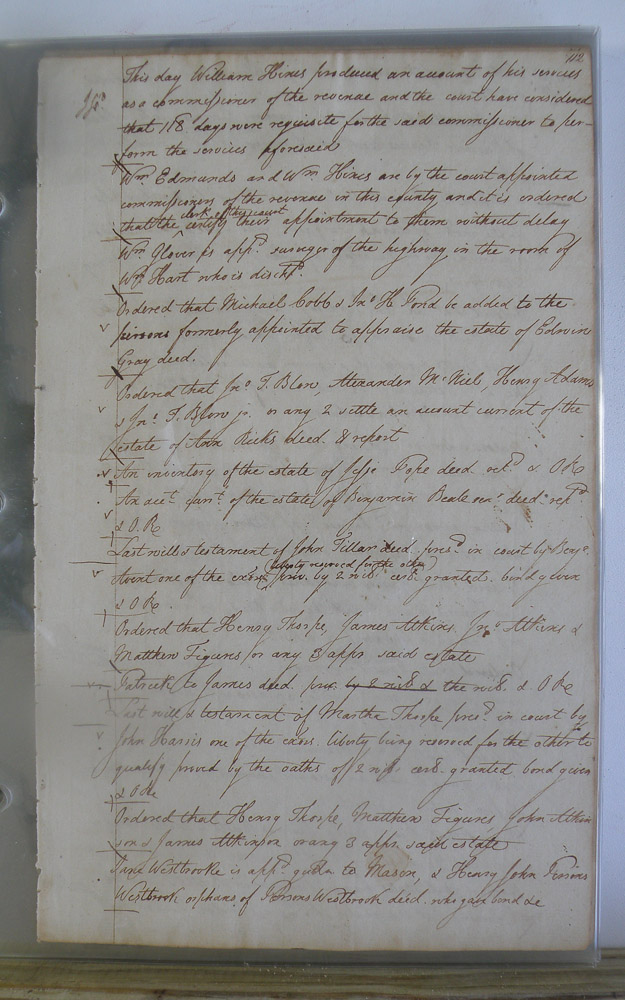 112
This day William Hines produced an account of his services
as a commissioner of the revenue and the court have considered
that 118 days were requisite for the said commissioner to per-
form the services aforesaid
Wm Edmunds and Wm Hines are by the court appointed
commissioners of the revenue in this county and it is ordered
clerk of this court
that the certify their appointment to them without delay
Wm Glover is appd. surveyor of the highway in the room of
Wm Hart who is dischd.
Ordered that Michael Cobb & Jno H Pond be added to the
persons formerly appointed to appraise the estate of Edwin
Gray deed.
Ordered that Jno T. Blow, Alexander McNiel, Henry Adams
& Jno T. Blow jr. or any 2 settle an account current of the
estate of Ann Ricks deed. & report
An inventory of the estate of Jesse Pope deed. retd & OR
An acct. currt. of the estate of Benjamin Beale senr deed. retd
& OR
Last will & testament of John Pillar deed. presd in court by
liberty reserved for the other
one of the exors prov. by 2 witss certs. granted. bond given
& OR
Ordered that Henry Thorpe, James Atkins Jno Atkins &
Matthew Figures or any 3 appr. said estate
to James deed. prov. by 2 witss & the witss. & OR
Last will & testament of Martha Thorpe presd in court by
John Harris one of the exors. liberty being reserved for the other to
qualify proved by the oaths of 2 witss certs. granted bond given
& OR
Ordered that Henry Thorpe, Matthew Figures John Atkin
son & James Atkinson or any 3 appr. said estate
Jane Westbrooke is appd. gudn to Mason, & Henry John Persons
Westbrook orphans of Persons Westbrook deed. who gave bond &c